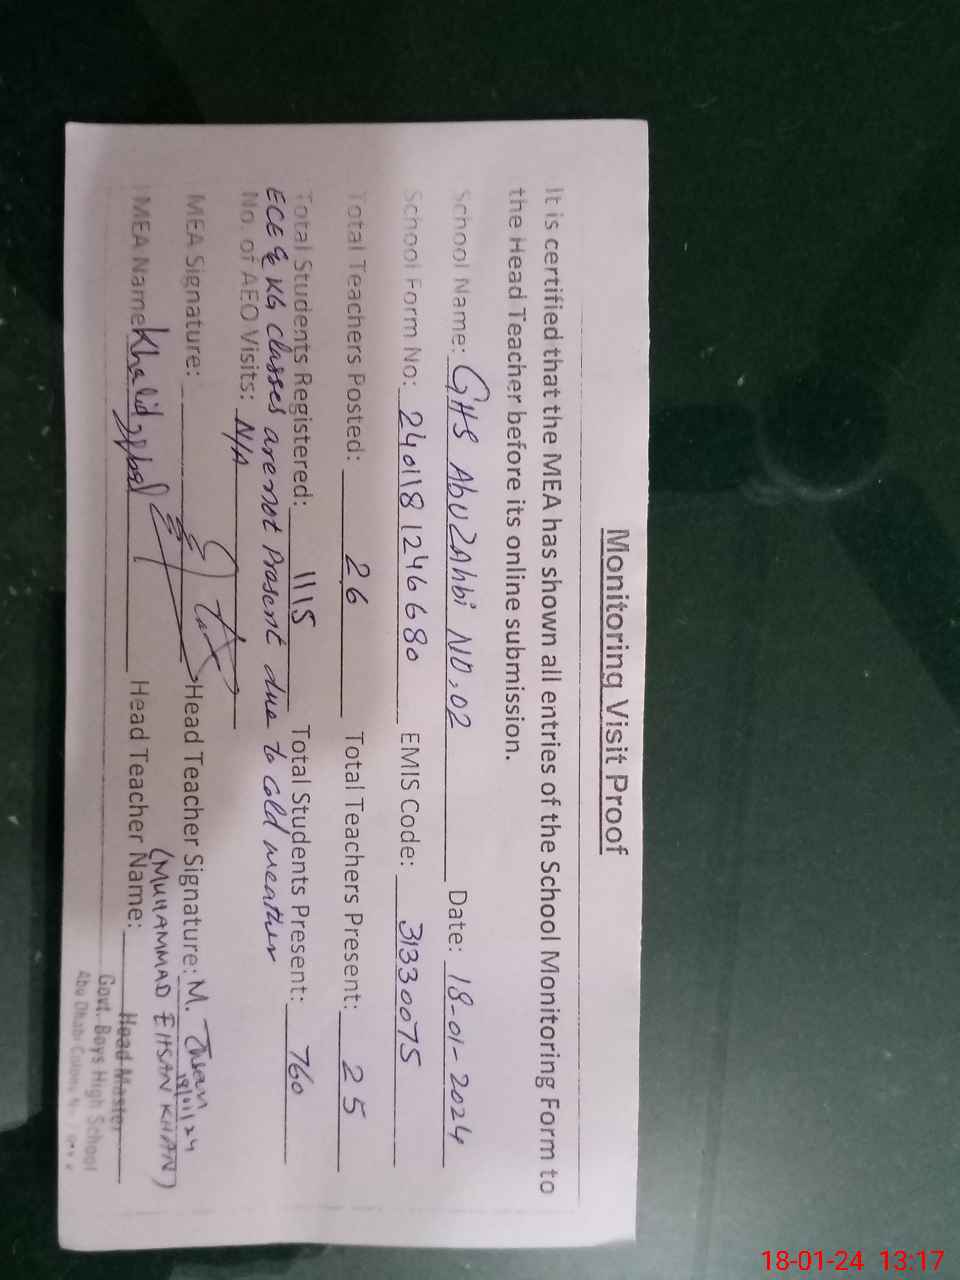 Monitoring Visit Proof
It is certified that the MEA has shown all entries of the School Monitoring Form to
the Head Teacher before its online submission.
School Name: GHS AbuZAhbi NO.02 Date: 18-01-2024
School Form No: 240118 1246680 EMIS Code: 31330075
Total Teachers Posted: 26 Total Teachers Present: 25
Total Students Registered: 1115 Total Students Present: 760
ECE & KG classes are not Present due to Cold weather
No. of AEO Visits: N/A
MEA Signature: Head Teacher Signature: M. Ehsan
18/01/24
(MUHAMMAD EHSAN KHAN)
MEA Name: Khalid Iqbal Head Teacher Name:
Head Master
Govt. Boys High School
Abu Dhabi Colony
18-01-24 13:17